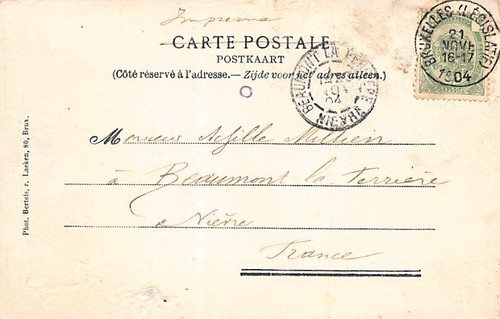 Imprimé
CARTE POSTALE
POSTKAART
(Côté réservé à l'adresse.—Zijde voor het adres alleen.)
BRUXELLES (LEGISLATIF)
21
NOVE
16-17
1904
BEAUMONT LA FERRIERE
04
NIEVRE
Monsieur Achille Millien
à Beaumont la Ferrière
Nièvre
France
Phot. Bertels, r. Laeken, 80, Brux.